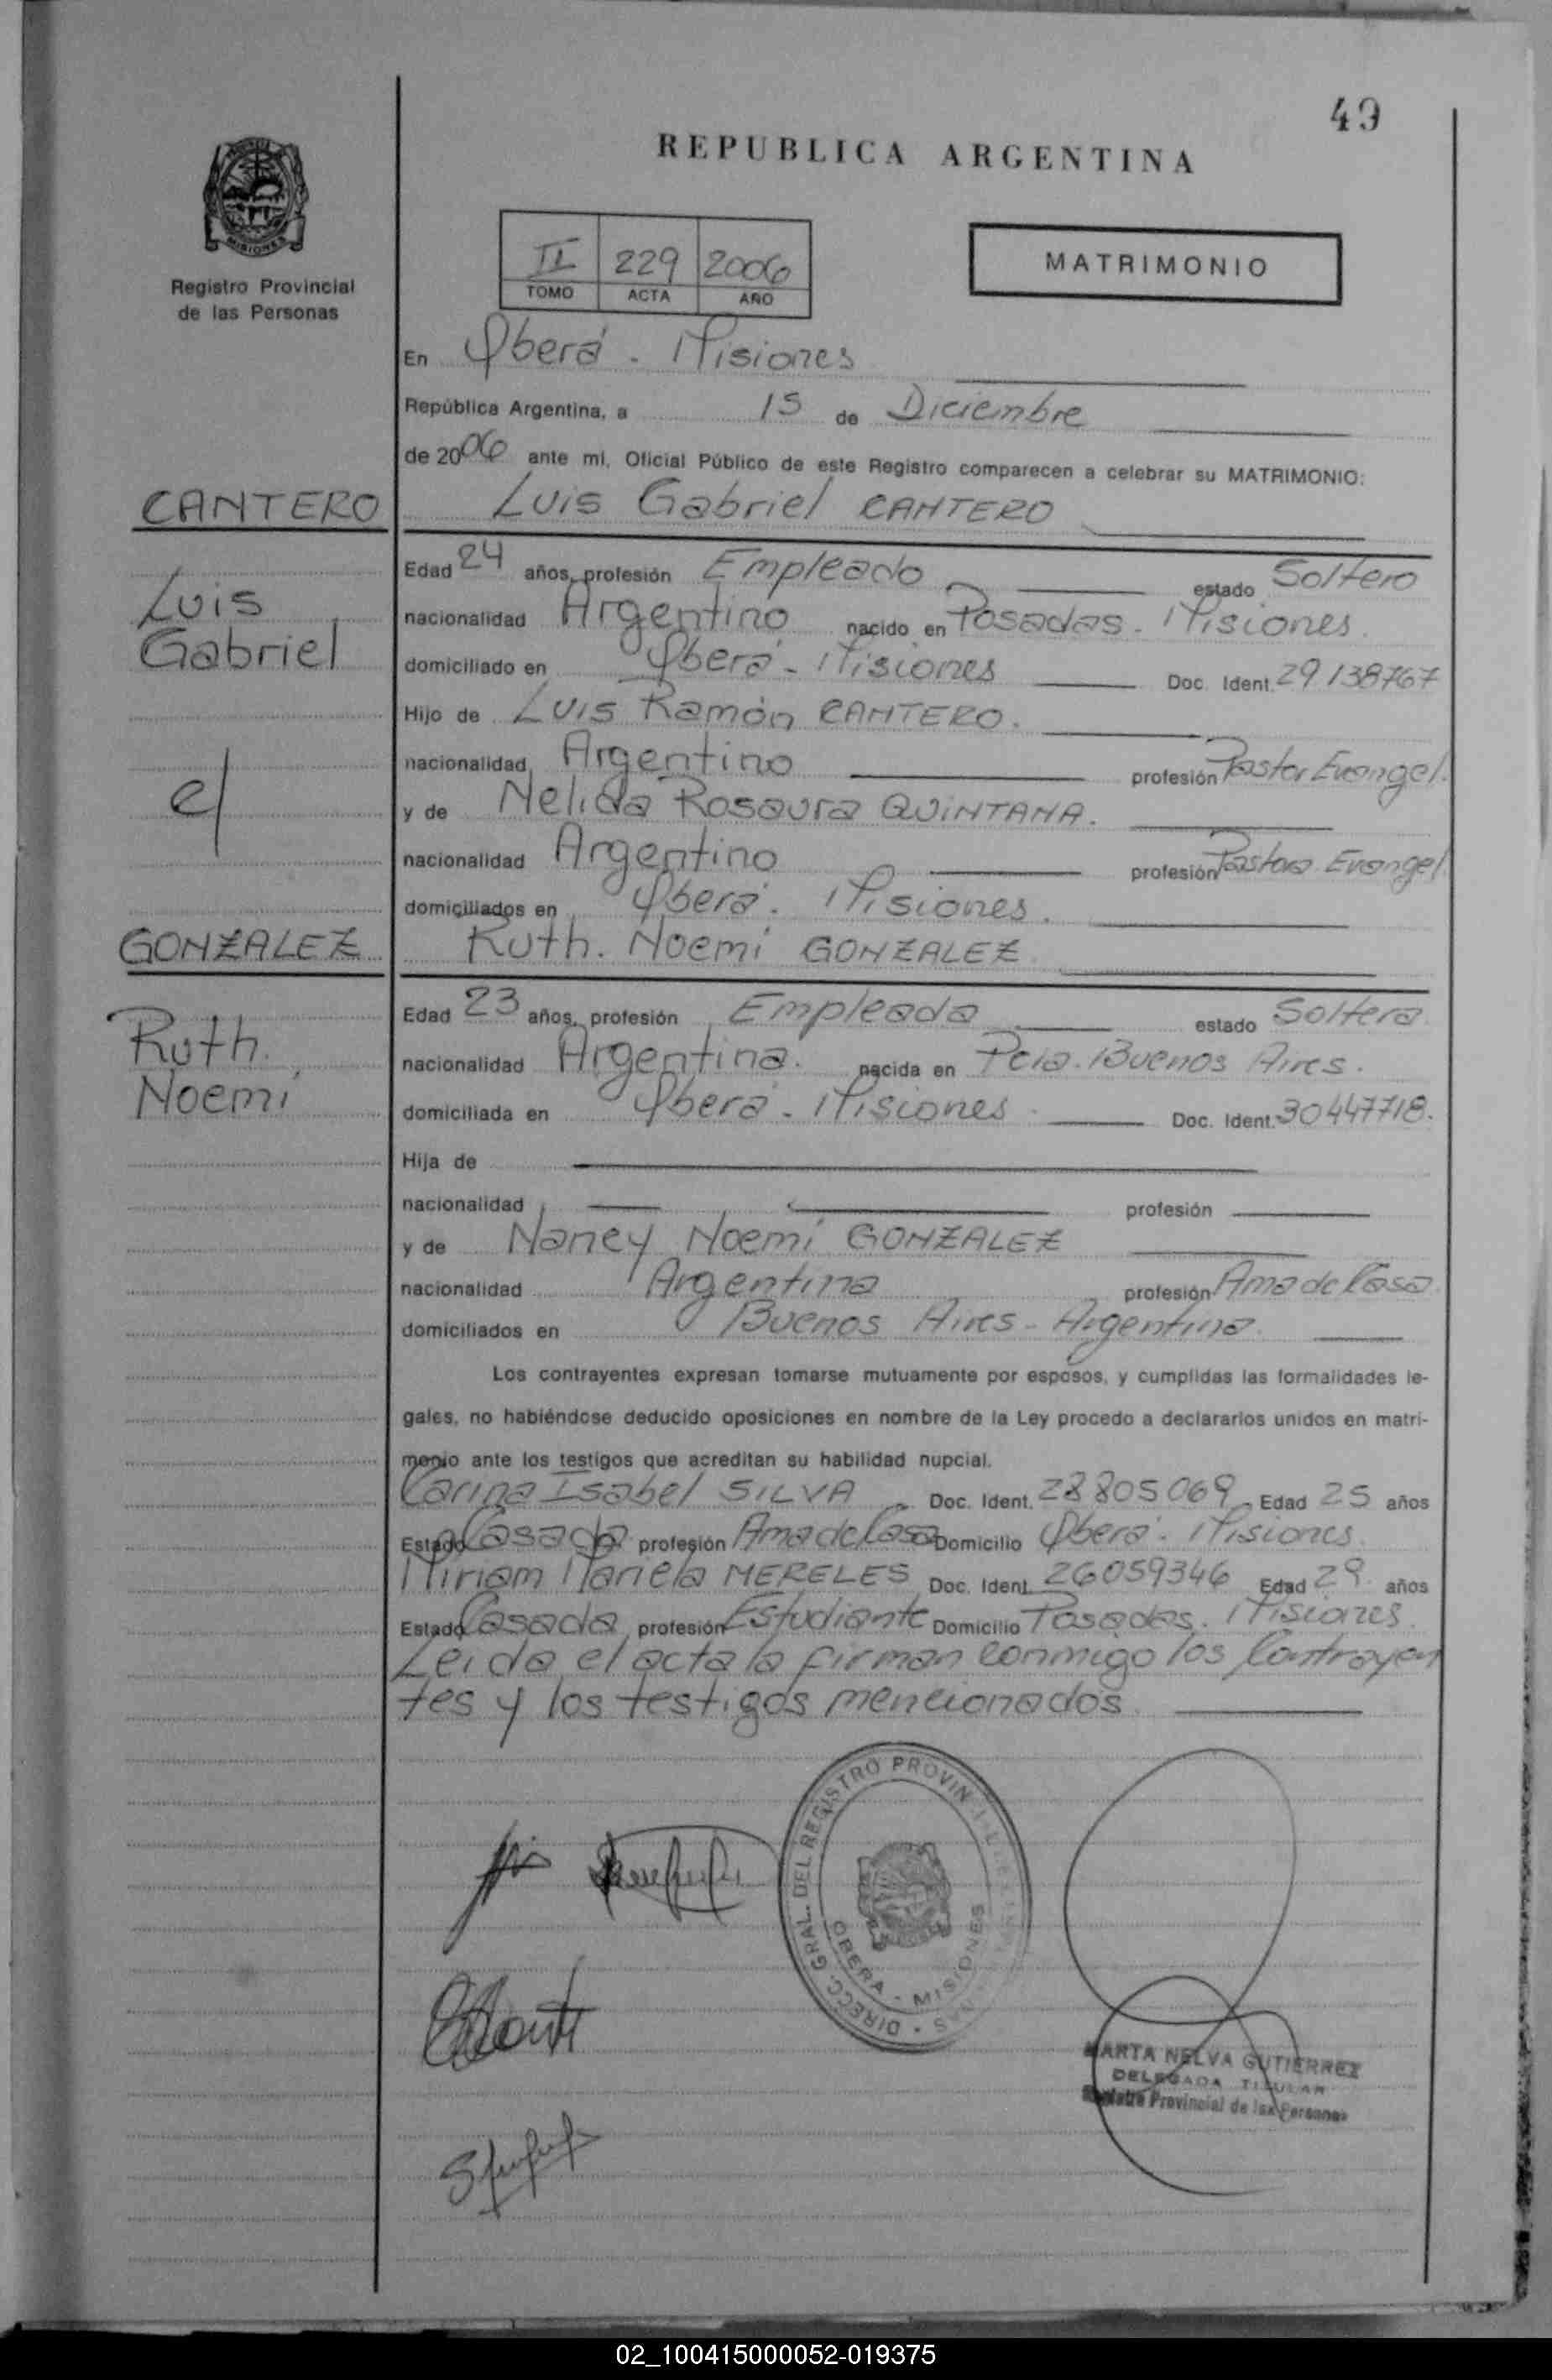 49
REPUBLICA ARGENTINA
MISIONES
Registro Provincial
de las Personas
II 229 2006
TOMO ACTA AÑO
MATRIMONIO
En Oberá - Misiones
República Argentina, a 15 de Diciembre
de 2006 ante mí, Oficial Público de este Registro comparecen a celebrar su MATRIMONIO:
CANTERO
Luis Gabriel CANTERO
Luis
Gabriel
c/
GONZALEZ
Ruth
Noemí
Edad 24 años, profesión Empleado estado Soltero
nacionalidad Argentino nacido en Posadas - Misiones
domiciliado en Oberá - Misiones Doc. Ident. 29138767
Hijo de Luis Ramón CANTERO.
nacionalidad Argentino profesión Pastor Evangel.
y de Nelida Rosaura QUINTANA.
nacionalidad Argentino profesión Pastora Evangel
domiciliados en Oberá. Misiones.
Ruth. Noemí GONZALEZ
Edad 23 años, profesión Empleada estado Soltera
nacionalidad Argentina. nacida en Pcia. Buenos Aires.
domiciliada en Oberá - Misiones Doc. Ident. 30447718.
Hija de
nacionalidad profesión
y de Nancy Noemí GONZALEZ
nacionalidad Argentina profesión Ama de Casa
domiciliados en Buenos Aires - Argentina.
Los contrayentes expresan tomarse mutuamente por esposos, y cumplidas las formalidades le-
gales, no habiéndose deducido oposiciones en nombre de la Ley procedo a declararlos unidos en matri-
monio ante los testigos que acreditan su habilidad nupcial.
Carina Isabel SILVA Doc. Ident. 28805069 Edad 25 años
Estado Casada profesión Ama de Casa Domicilio Oberá. Misiones
Miriam Mariela MERELES Doc. Ident. 26059346 Edad 29 años
Estado Casada profesión Estudiante Domicilio Posadas. Misiones.
Leida el acta la firman conmigo los Contrayen
tes y los testigos mencionados
DIRECC. GRAL. DEL REGISTRO PROVIN
OBERA - MISIONES
MARTA NELVA GUTIERREZ
DELEGADA TITULAR
Registro Provincial de las Personas
02_100415000052-019375